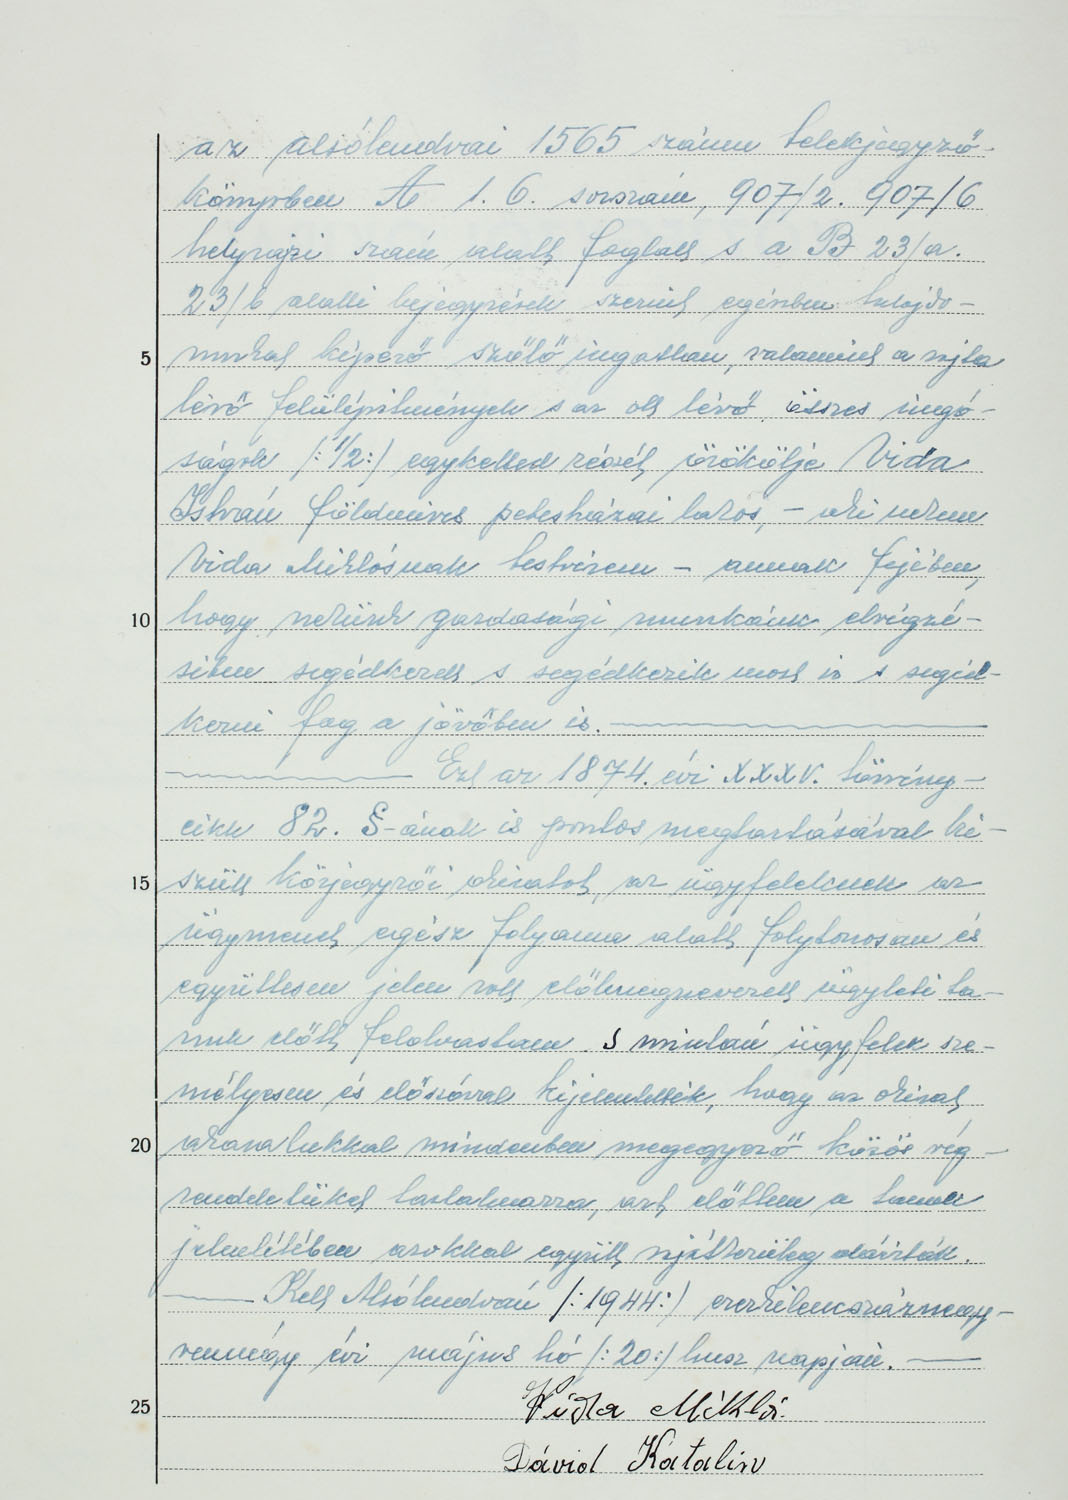 az alsólendvai 1565 számu telekjegyző-
könyvben A 1. 6. sorszám, 907/2. 907/6
helyrajzi szám alatt foglalt s a B 23/a.
23/b alatti bejegyzések szerint egészben tulajdo-
nunkat képező szőlő ingatlan, valamint a rajta
lévő felülépitmények s az ott lévő összes ingó-
ságok /:1/2:/ egyketted részét örökölje Vida
István földmives petesházai lakos, - aki nekem
Vida Miklósnak testvérem - annak fejében,
hogy nekünk gazdasági munkáink elvégzé-
sében segédkezett s segédkezik most is s segéd-
kezni fog a jövőben is.
Ezt az 1874. évi XXXV. törvény-
cikk 82. §-ának is pontos megtartásával ké-
szült közjegyzői okiratot, az ügyfeleknek az
ügymenet egész folyama alatt folytonosan és
együttesen jelen volt előlmegnevezett ügyleti ta-
nuk előtt felolvastam s miután ügyfelek sze-
mélyesen és élőszóval kijelentették, hogy az okirat
akaratukkal mindenben megegyező közös vég-
rendeletüket tartalmazza, azt előttem a tanuk
jelenlétében azokkal együtt sajátkezüleg aláirták.
Kelt Alsólendván /:1944:/ ezerkilencszáznegy-
vennégy évi május hó /:20:/ husz napján.
5
10
15
20
25
Vida Miklós
Dávid Katalin